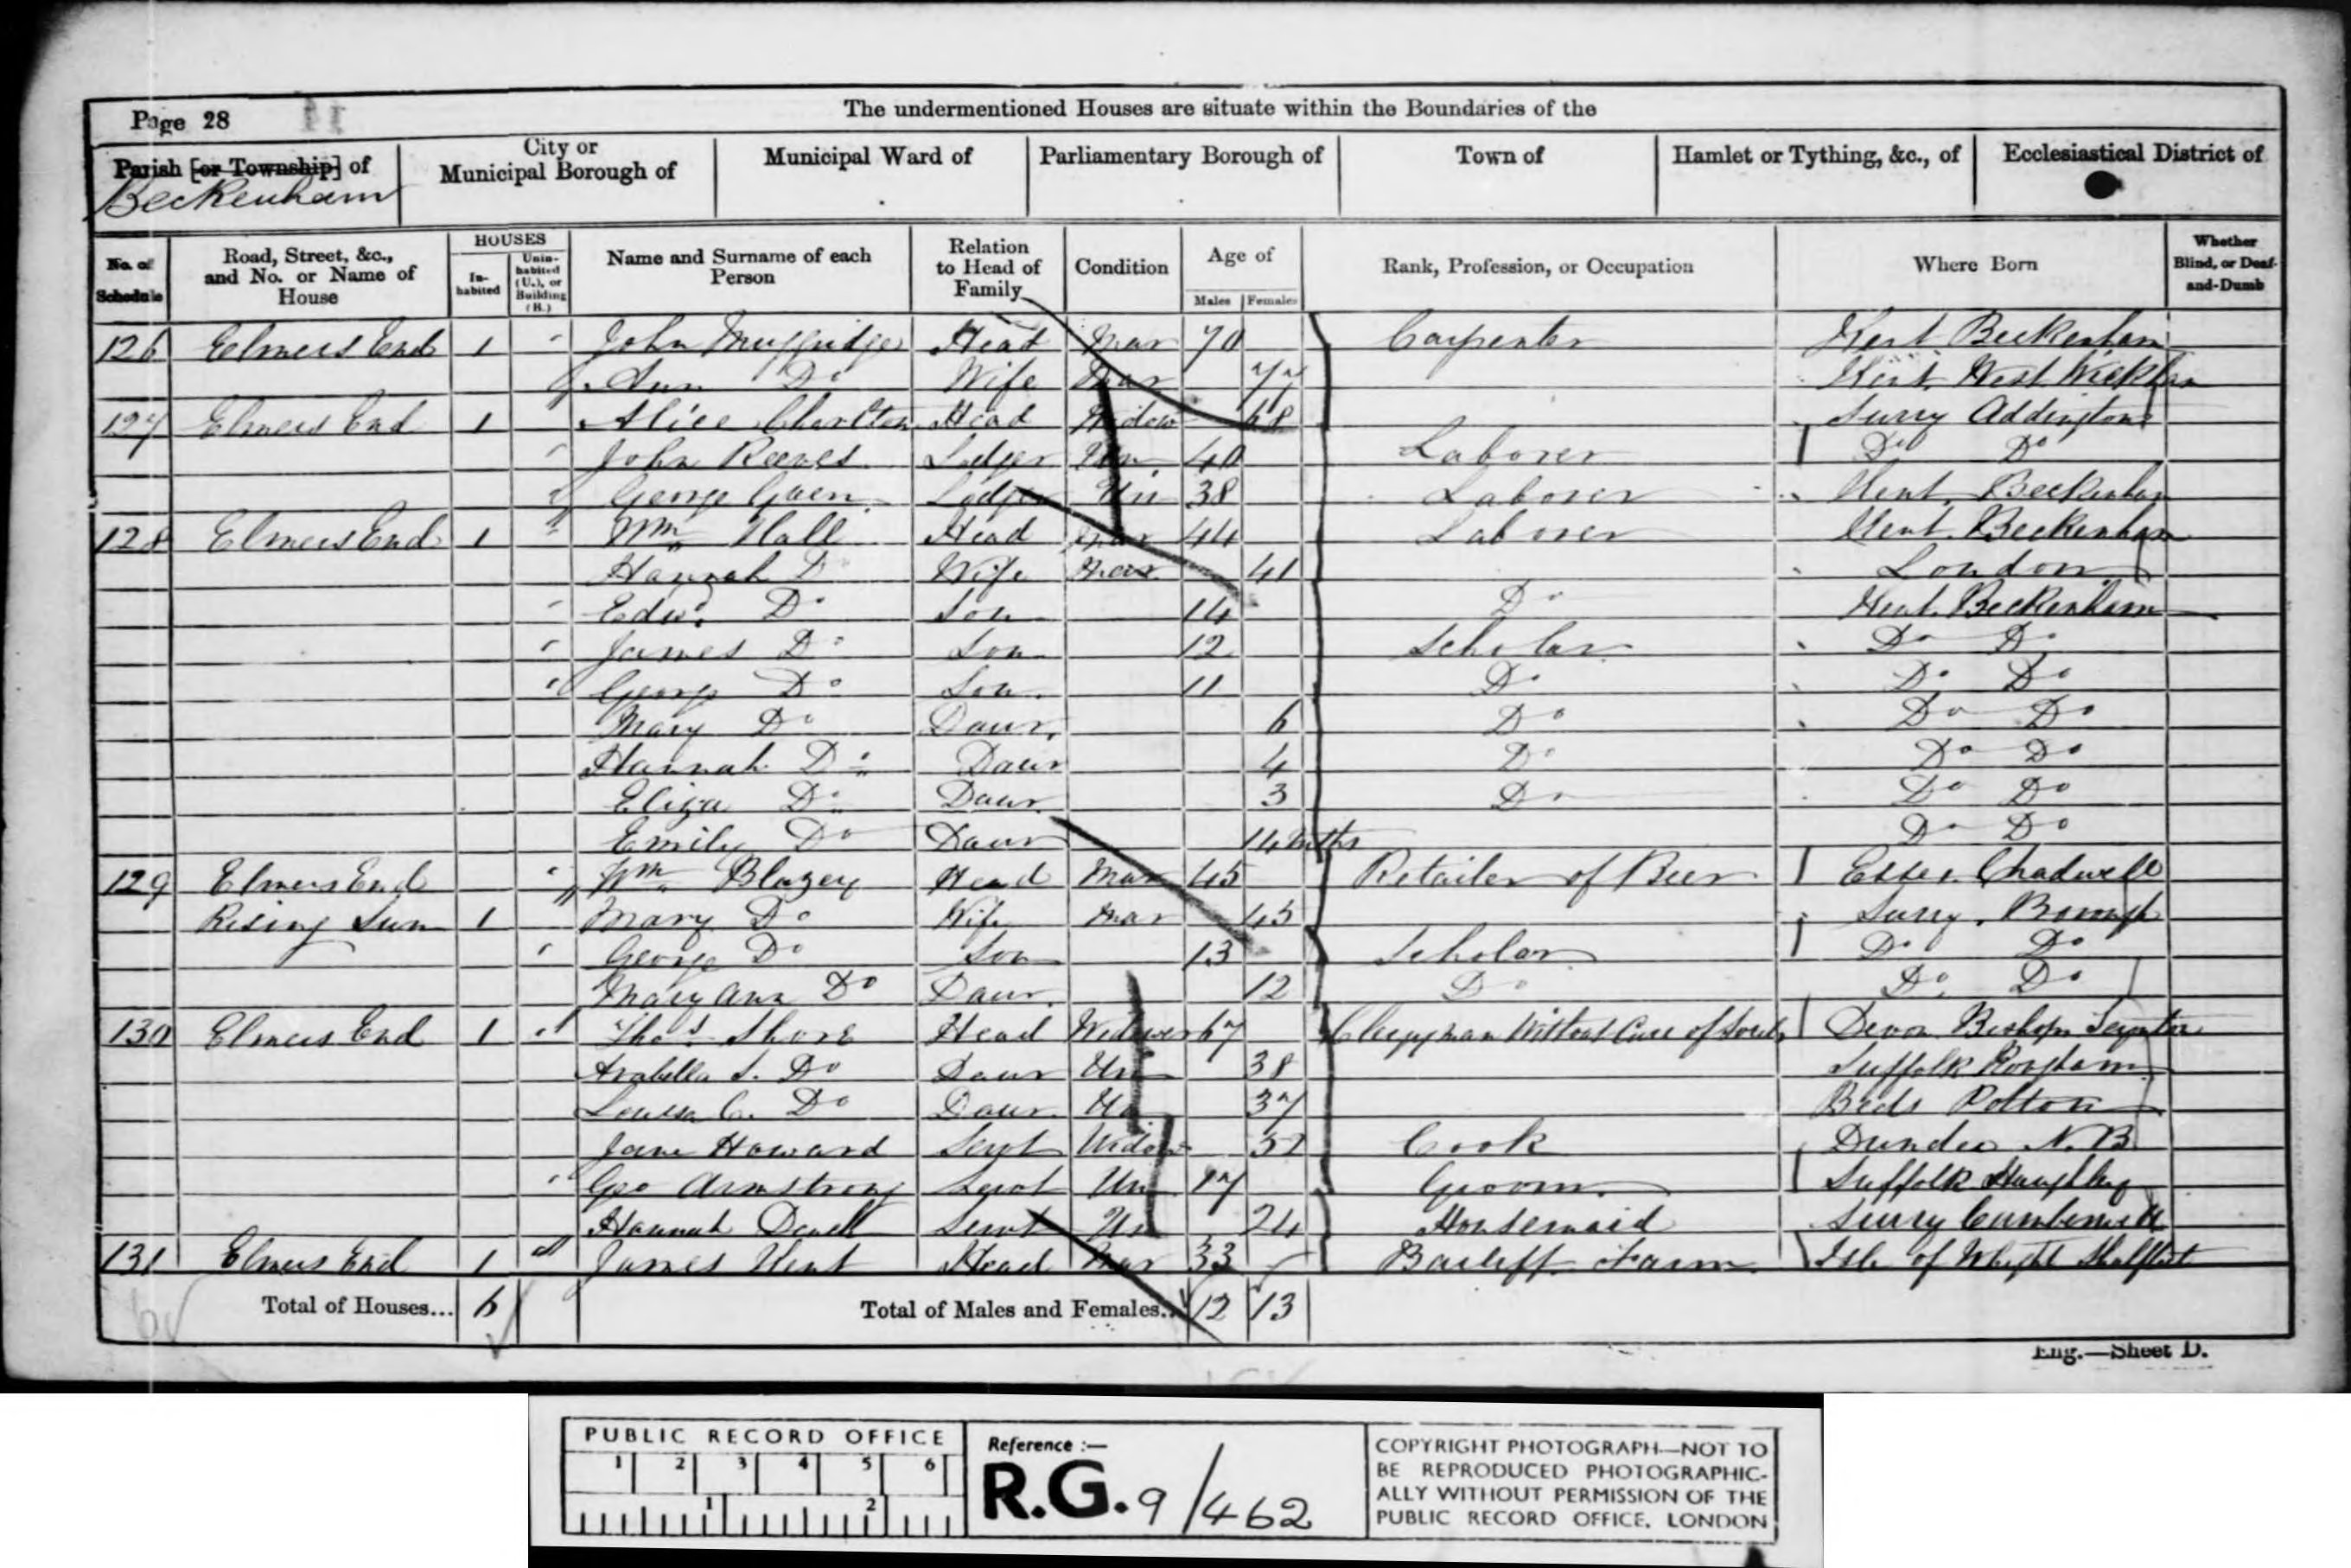 Page 28
The undermentioned Houses are situate within the Boundaries of the
Parish [or Township] of
Beckenham
City or
Municipal Borough of
Municipal Ward of
Parliamentary Borough of
Town of
Hamlet or Tything, &c., of
Ecclesiastical District of
No. of Schedule
Road, Street, &c., and No. or Name of House
HOUSES
In-habited
Unin-habited (U.), or Building (B.)
Name and Surname of each Person
Relation to Head of Family
Condition
Age of
Males Females
Rank, Profession, or Occupation
Where Born
Whether Blind, or Deaf-and-Dumb
126 Elmers End 1 John Muggridge Head Mar 70 Carpenter Kent Beckenham
Ann Do Wife Mar 77 Kent West Wickham
127 Elmers End 1 Alice Charlton Head Widow 68 Surry Addington
John Reeves Lodger Un 40 Laborer Do Do
George Lodger Un 38 Laborer Kent Beckenham
128 Elmers End 1 Wm Hall Head Mar 44 Laborer Kent Beckenham
Hannah Do Wife Mar 41 London
Edwd Do Son 14 Do Kent Beckenham
James Do Son 12 Scholar Do Do
George Do Son 11 Do Do Do
Mary Do Daur 6 Do Do Do
Hannah Do Daur 4 Do Do Do
Eliza Do Daur 3 Do Do Do
Emily Do Daur 14 Mths Do Do
129 Elmers End Wm Blazey Head Mar 45 Retailer of Beer Essex Chadwell
Rising Sun 1 Mary Do Wife Mar 45 Surry Borough
George Do Son 13 Scholar Do Do
Mary Ann Do Daur 12 Do Do Do
130 Elmers End 1 Thos Shore Head Widower 67 Clergyman Without Cure of Souls Devon Bishops
Arabella S. Do Daur Un 38 Suffolk
Louisa C. Do Daur Un 37 Beds Potton
Jane Howard Servt Widow Cook Dundee N.B
Geo Armstrong Servt Un Groom Suffolk Haughley
Hannah Servt Un 24 Housemaid Surry Camberwell
131 Elmers End 1 James Kent Head Mar 33 Bailiff Farm Isle of Wight Shalfleet
Total of Houses... 6 Total of Males and Females... 12 13
Eng.—Sheet D.
PUBLIC RECORD OFFICE
1 2 3 4 5 6
1 2
Reference :—
R.G. 9/462
COPYRIGHT PHOTOGRAPH—NOT TO
BE REPRODUCED PHOTOGRAPHIC-
ALLY WITHOUT PERMISSION OF THE
PUBLIC RECORD OFFICE, LONDON